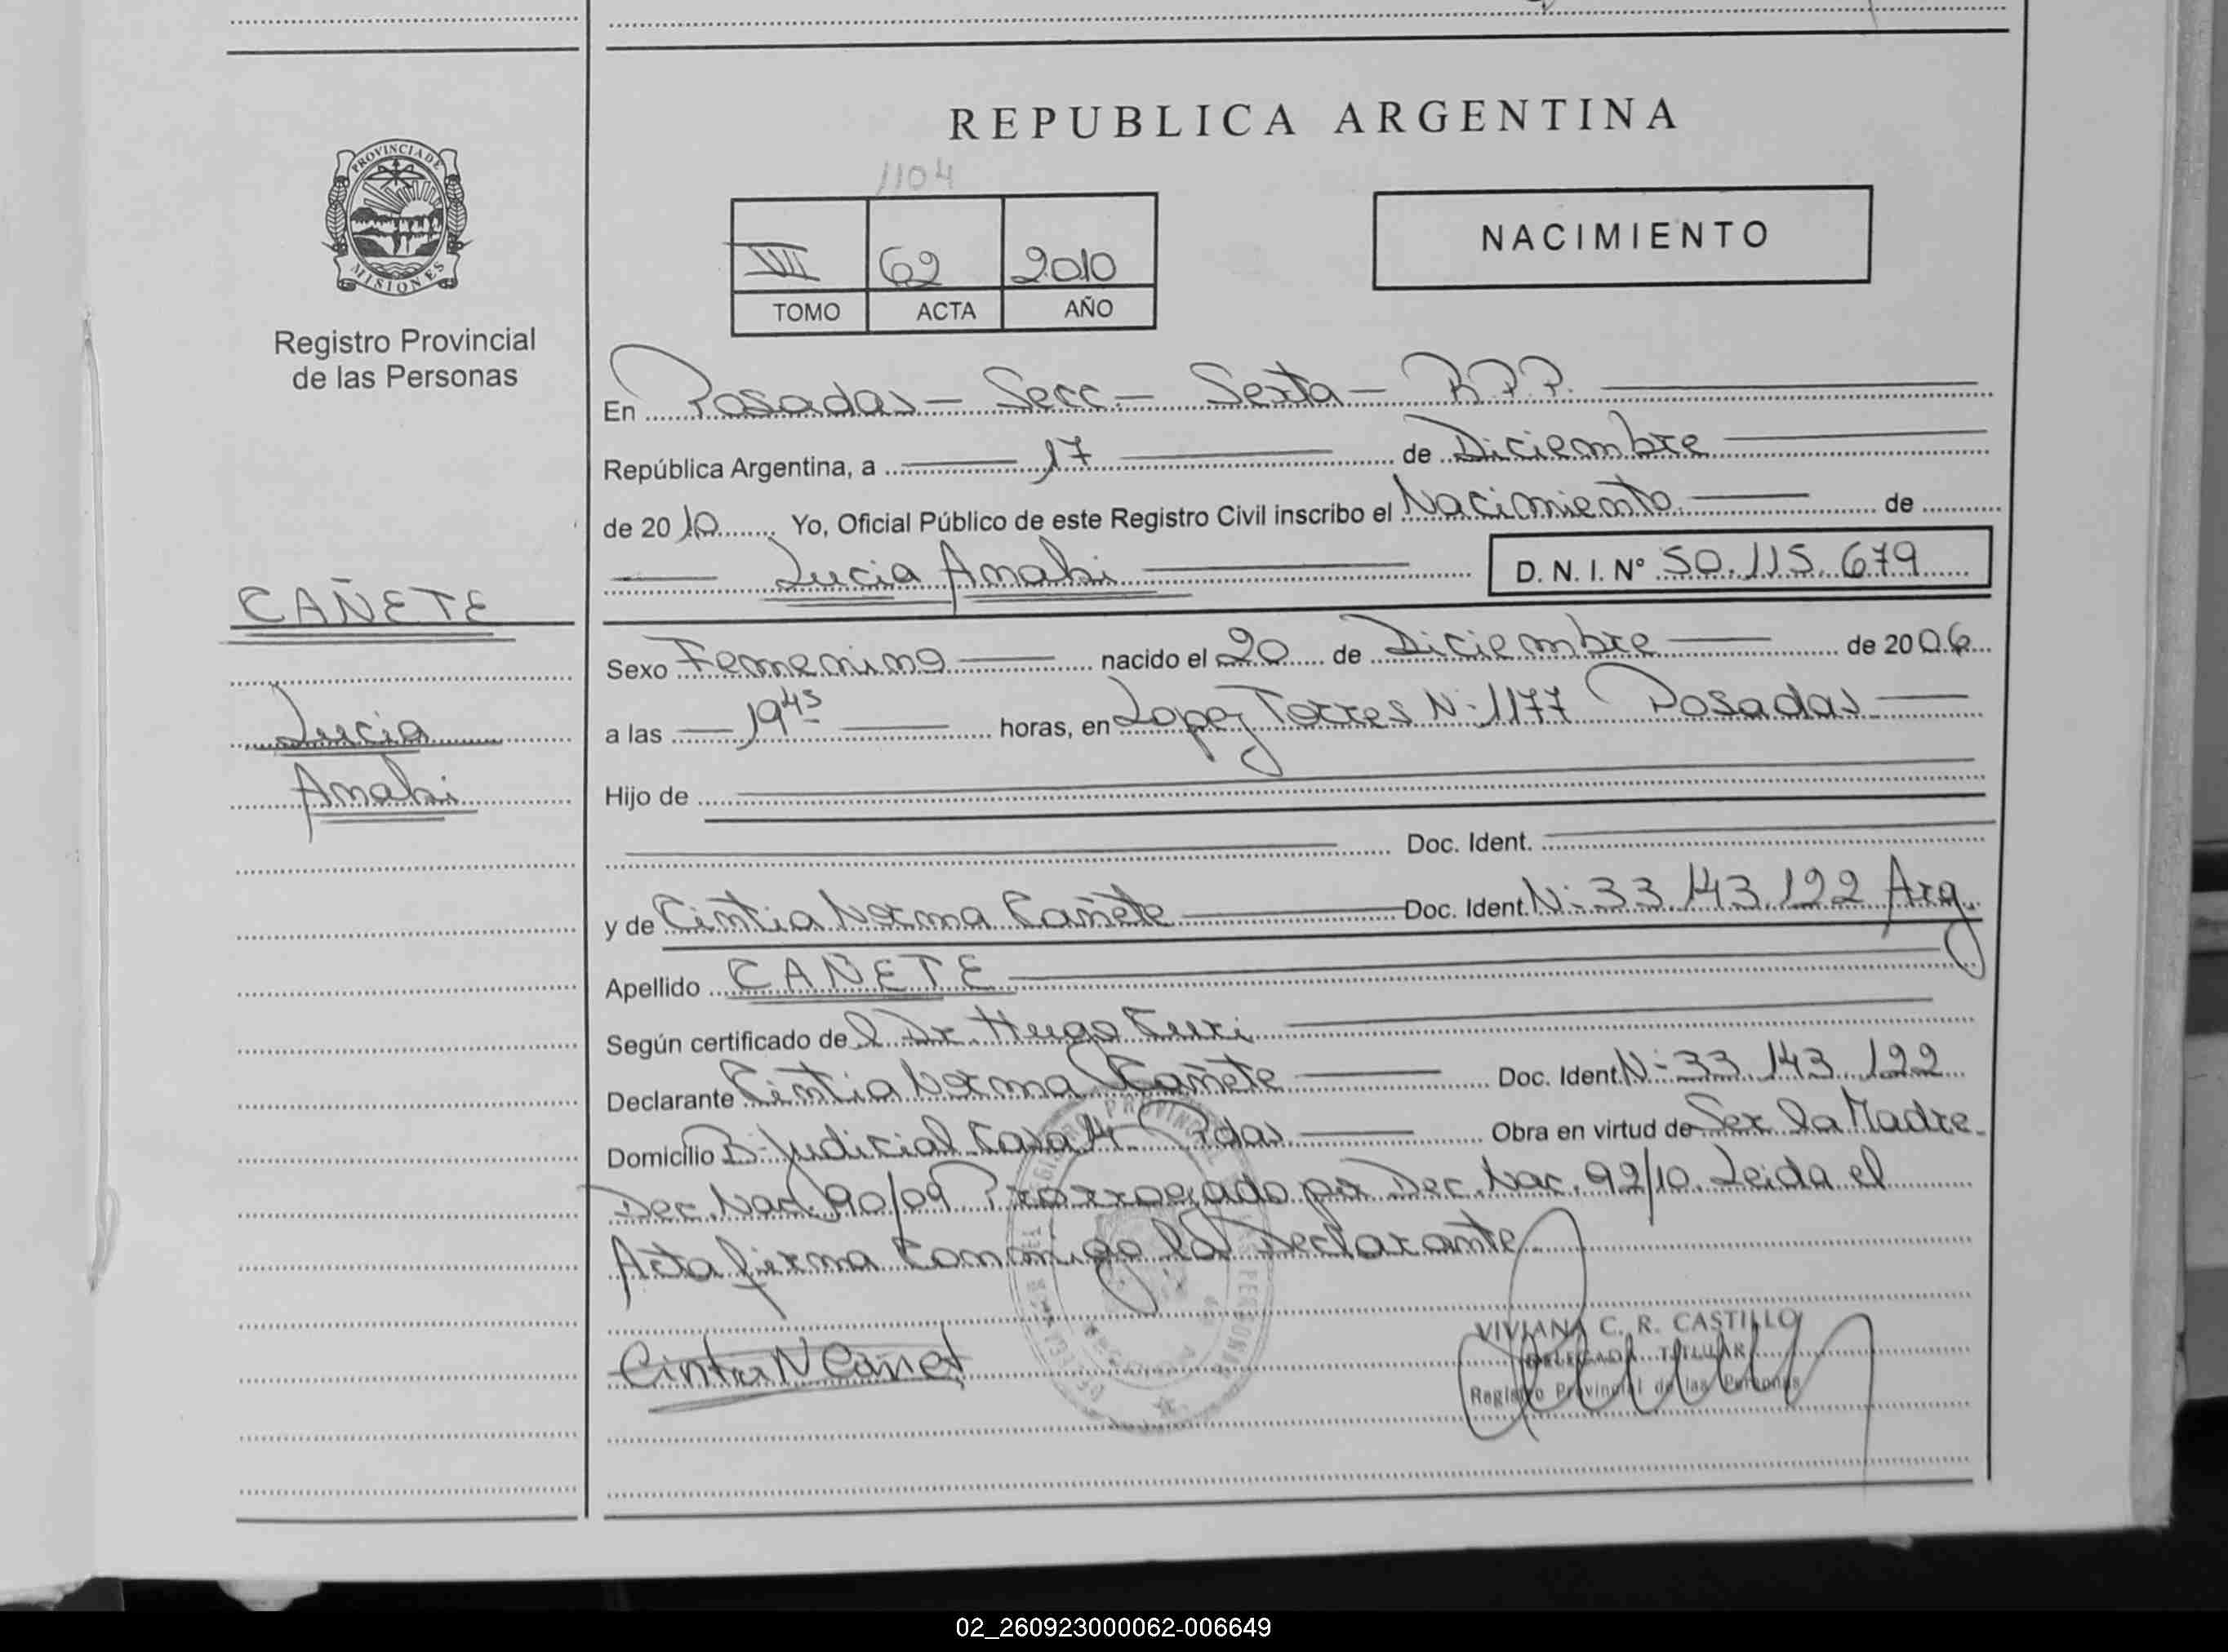 REPUBLICA ARGENTINA
1104
PROVINCIA DE
MISIONES
Registro Provincial
de las Personas
VII 62 2010
TOMO ACTA AÑO
NACIMIENTO
En Posadas - Secc - Sexta - R.P.P.
República Argentina, a 17 de Diciembre
de 2010 Yo, Oficial Público de este Registro Civil inscribo el Nacimiento de
Lucia Amahi D. N. I. Nº 50.115.679
CAÑETE
Lucia
Amahi
Sexo Femenino nacido el 20 de Diciembre de 2006
a las 19 45 horas, en Lopez Torres N- 1177 Posadas
Hijo de
Doc. Ident.
y de Cintia Norma Cañete Doc. Ident. N- 33.143.122 Arg.
Apellido CAÑETE
Según certificado del Dr. Hugo Curi
Declarante Cintia Norma Cañete Doc. Ident. N- 33.143.122
Domicilio B- Judicial Casa 14 Pdas Obra en virtud de Ser la Madre.
Dec. Nac. 90/09 Prorrogado por Dec. Nac. 92/10. Leida el
Acta firma conmigo la Declarante
Cintia N Cañet
VIVIANA C. R. CASTILLO
DELEGADA TITULAR
Registro Provincial de las Personas
02_260923000062-006649